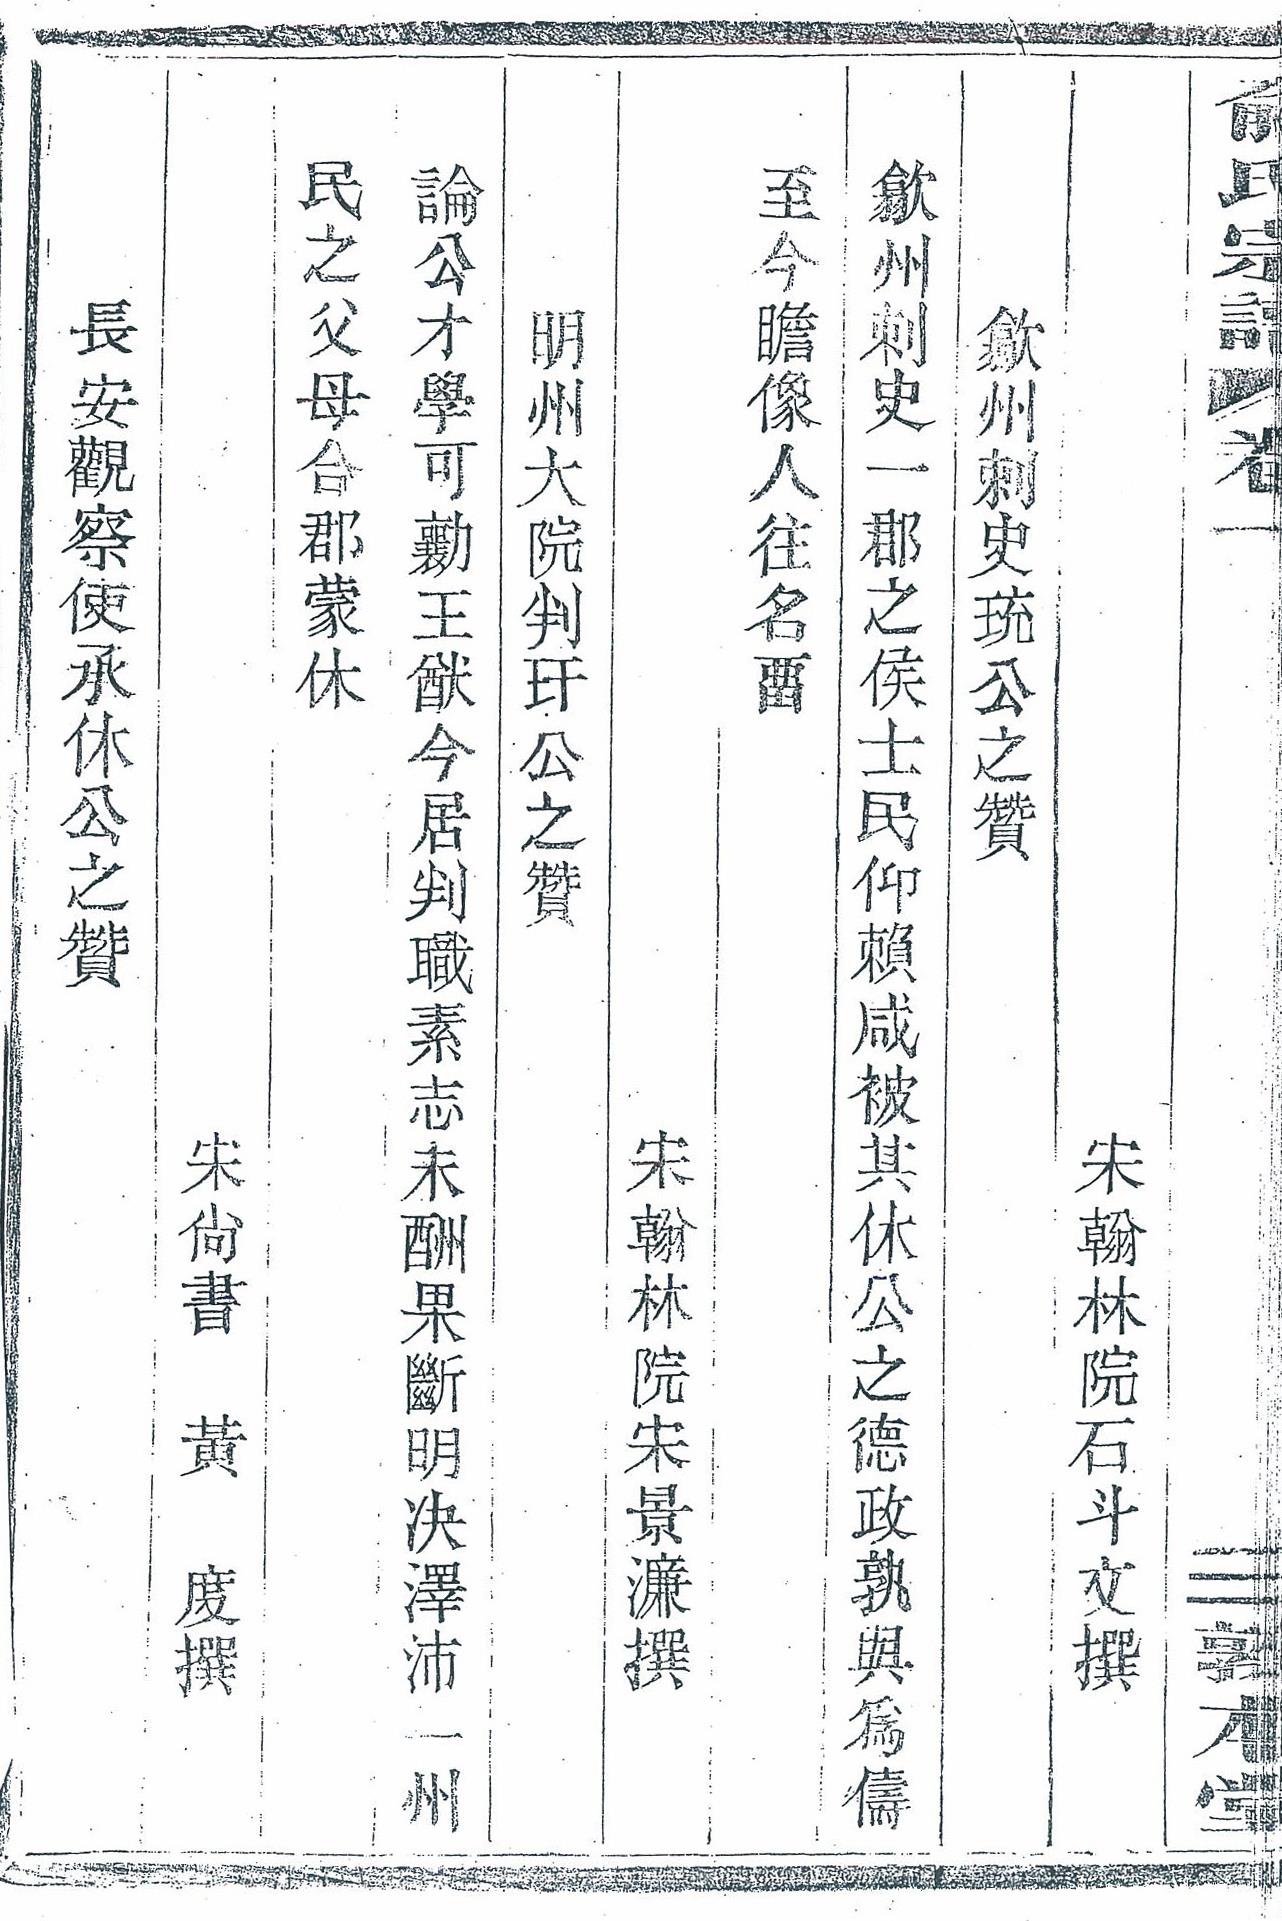 俞氏宗譜 卷一 三 敦本堂
宋翰林院石斗文撰
歙州刺史珫公之贊
歙州刺史一郡之侯士民仰賴咸被其休公之德政孰與爲儔
至今瞻像人往名畱
宋翰林院宋景濂撰
明州大院判玕公之贊
論公才學可勷王猷今居判職素志未酬果斷明决澤沛一州
民之父母合郡蒙休
宋尙書 黃 度撰
長安觀察使承休公之贊